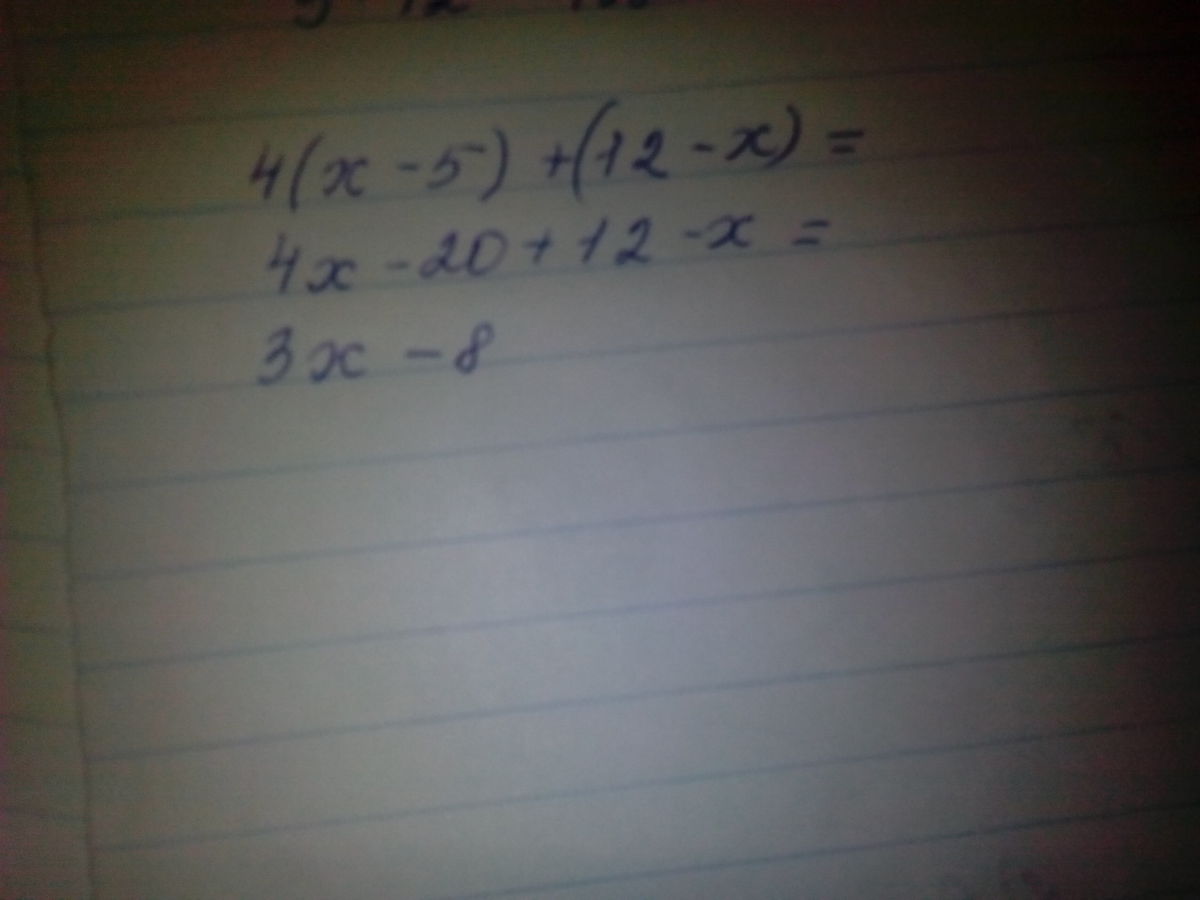 4(x - 5) + (12 - x) =
4x - 20 + 12 - x =
3x - 8